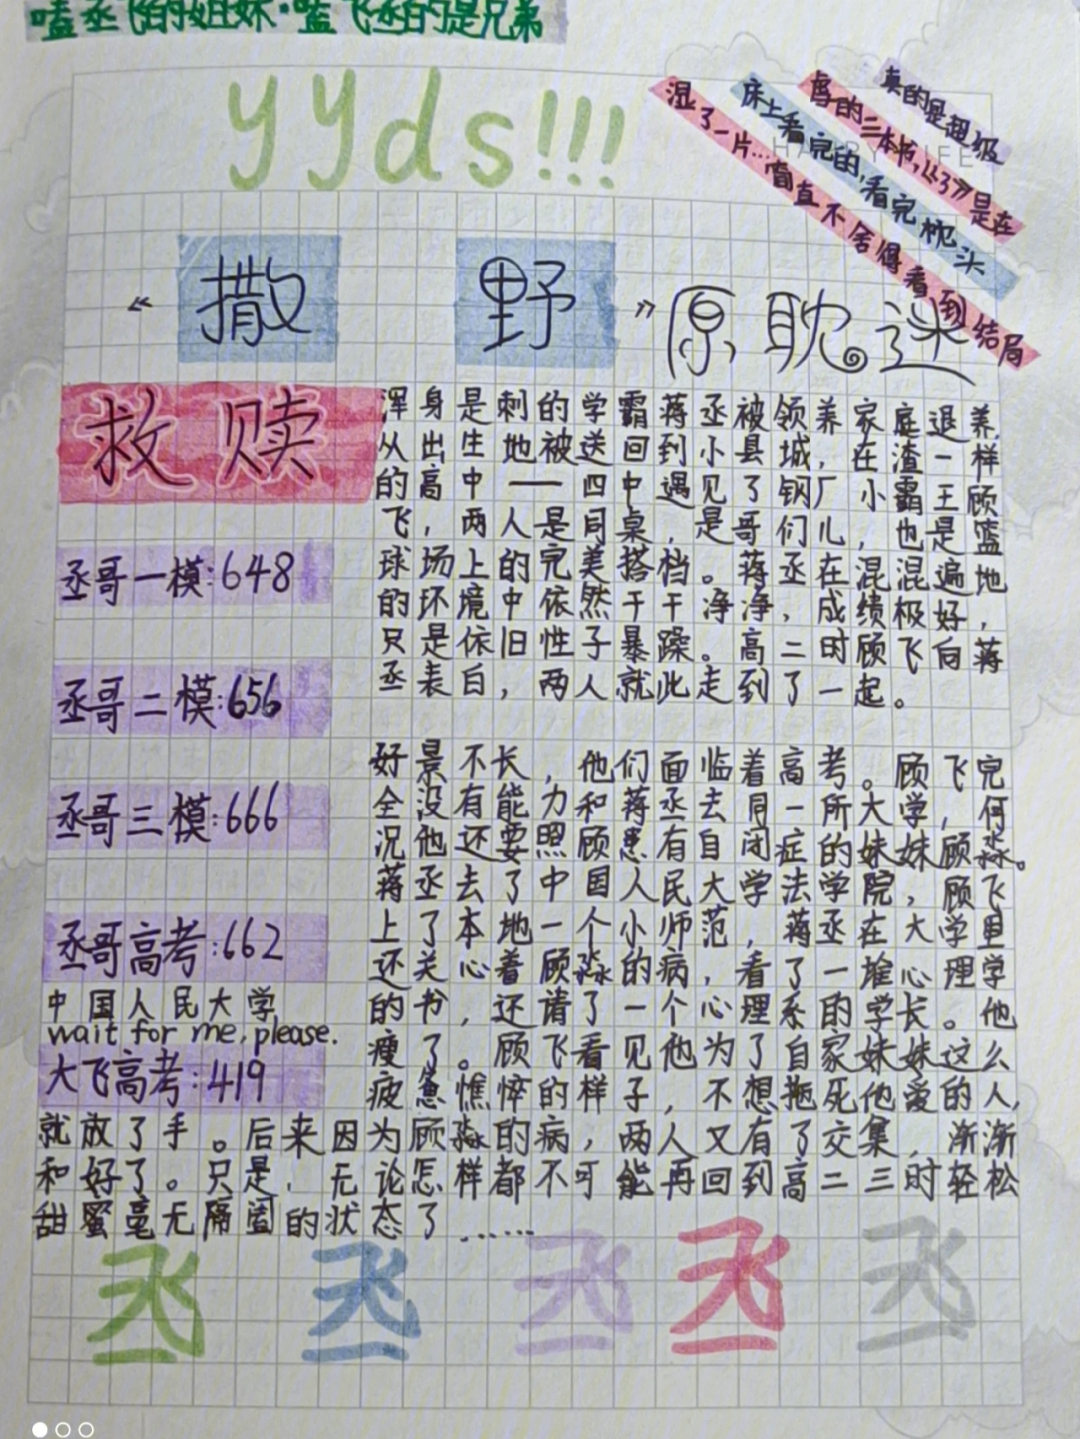 嗑丞飞的姐妹·嗑飞丞的是兄弟
yyds!!!
真的是超级
虐的一本书,《43》是在
床上看完的,看完枕头
湿了一片…简直不舍得看到结局
HAPPY LIFE
《撒野》原耽迷
救赎
浑身是刺的学霸蒋丞被领养家庭退养,
从出生地被送回到小县城,在渣一样
的高中——四中遇见了钢厂小霸王顾
飞,两人是同桌,是哥们儿,也是篮
球场上的完美搭档。蒋丞在混混遍地
的环境中依然干干净净,成绩极好,
只是依旧性子暴躁。高二时顾飞向蒋
丞表白,两人就此走到了一起。
丞哥一模:648
丞哥二模:656
丞哥三模:666
丞哥高考:662
中国人民大学
wait for me,please.
大飞高考:419
好景不长,他们面临着高考。顾飞完
全没有能力和蒋丞去同一所大学,何
况他还要照顾患有自闭症的妹妹顾淼。
蒋丞去了中国人民大学法学院,顾飞
上了本地一个小师范,蒋丞在大学里
还关心着顾淼的病,看了一堆心理学
的书,还请了一个心理系的学长。他
瘦了。顾飞看见他为了自家妹妹这么
疲惫憔悴的样子,不想拖死他爱的人,
就放了手。后来因为顾淼的病,两人又有了交集,渐渐
和好了。只是,无论怎样都不可能再回到高二三时轻松
甜蜜毫无隔阂的状态了……
丞 丞 丞 丞 丞